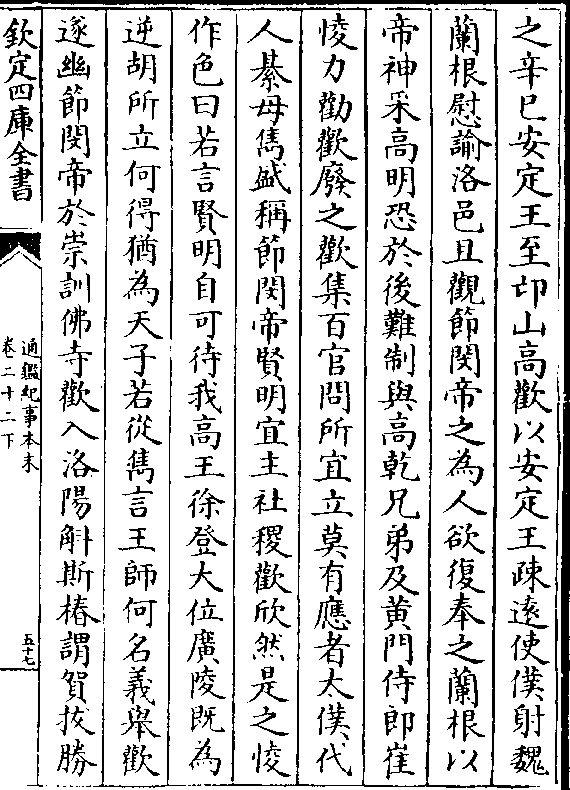 之辛巳安定王至邙山高歡以安定王疎逺使僕射魏
蘭根慰諭洛邑且觀節閔帝之為人欲復奉之蘭根以
帝神采高明恐於後難制與高乾兄弟及黄門侍郎崔
㥄力勸歡廢之歡集百官問所宜立莫有應者太僕代
人綦毋儁盛稱節閔帝賢明宜主社稷歡欣然是之㥄
作色曰若言賢明自可待我高王徐登大位廣陵既為
逆胡所立何得猶為天子若從儁言王師何名義舉歡
遂幽節閔帝於崇訓佛寺歡入洛陽斛斯椿謂賀抜勝
欽定四庫全書
通鑑紀事本末
卷二十二下
五十七